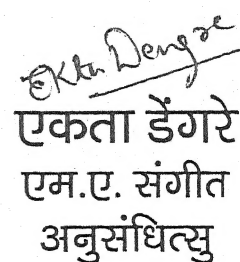 Ekta Dengre
एकता डेंगरे
एम.ए. संगीत
अनुसंधित्सु